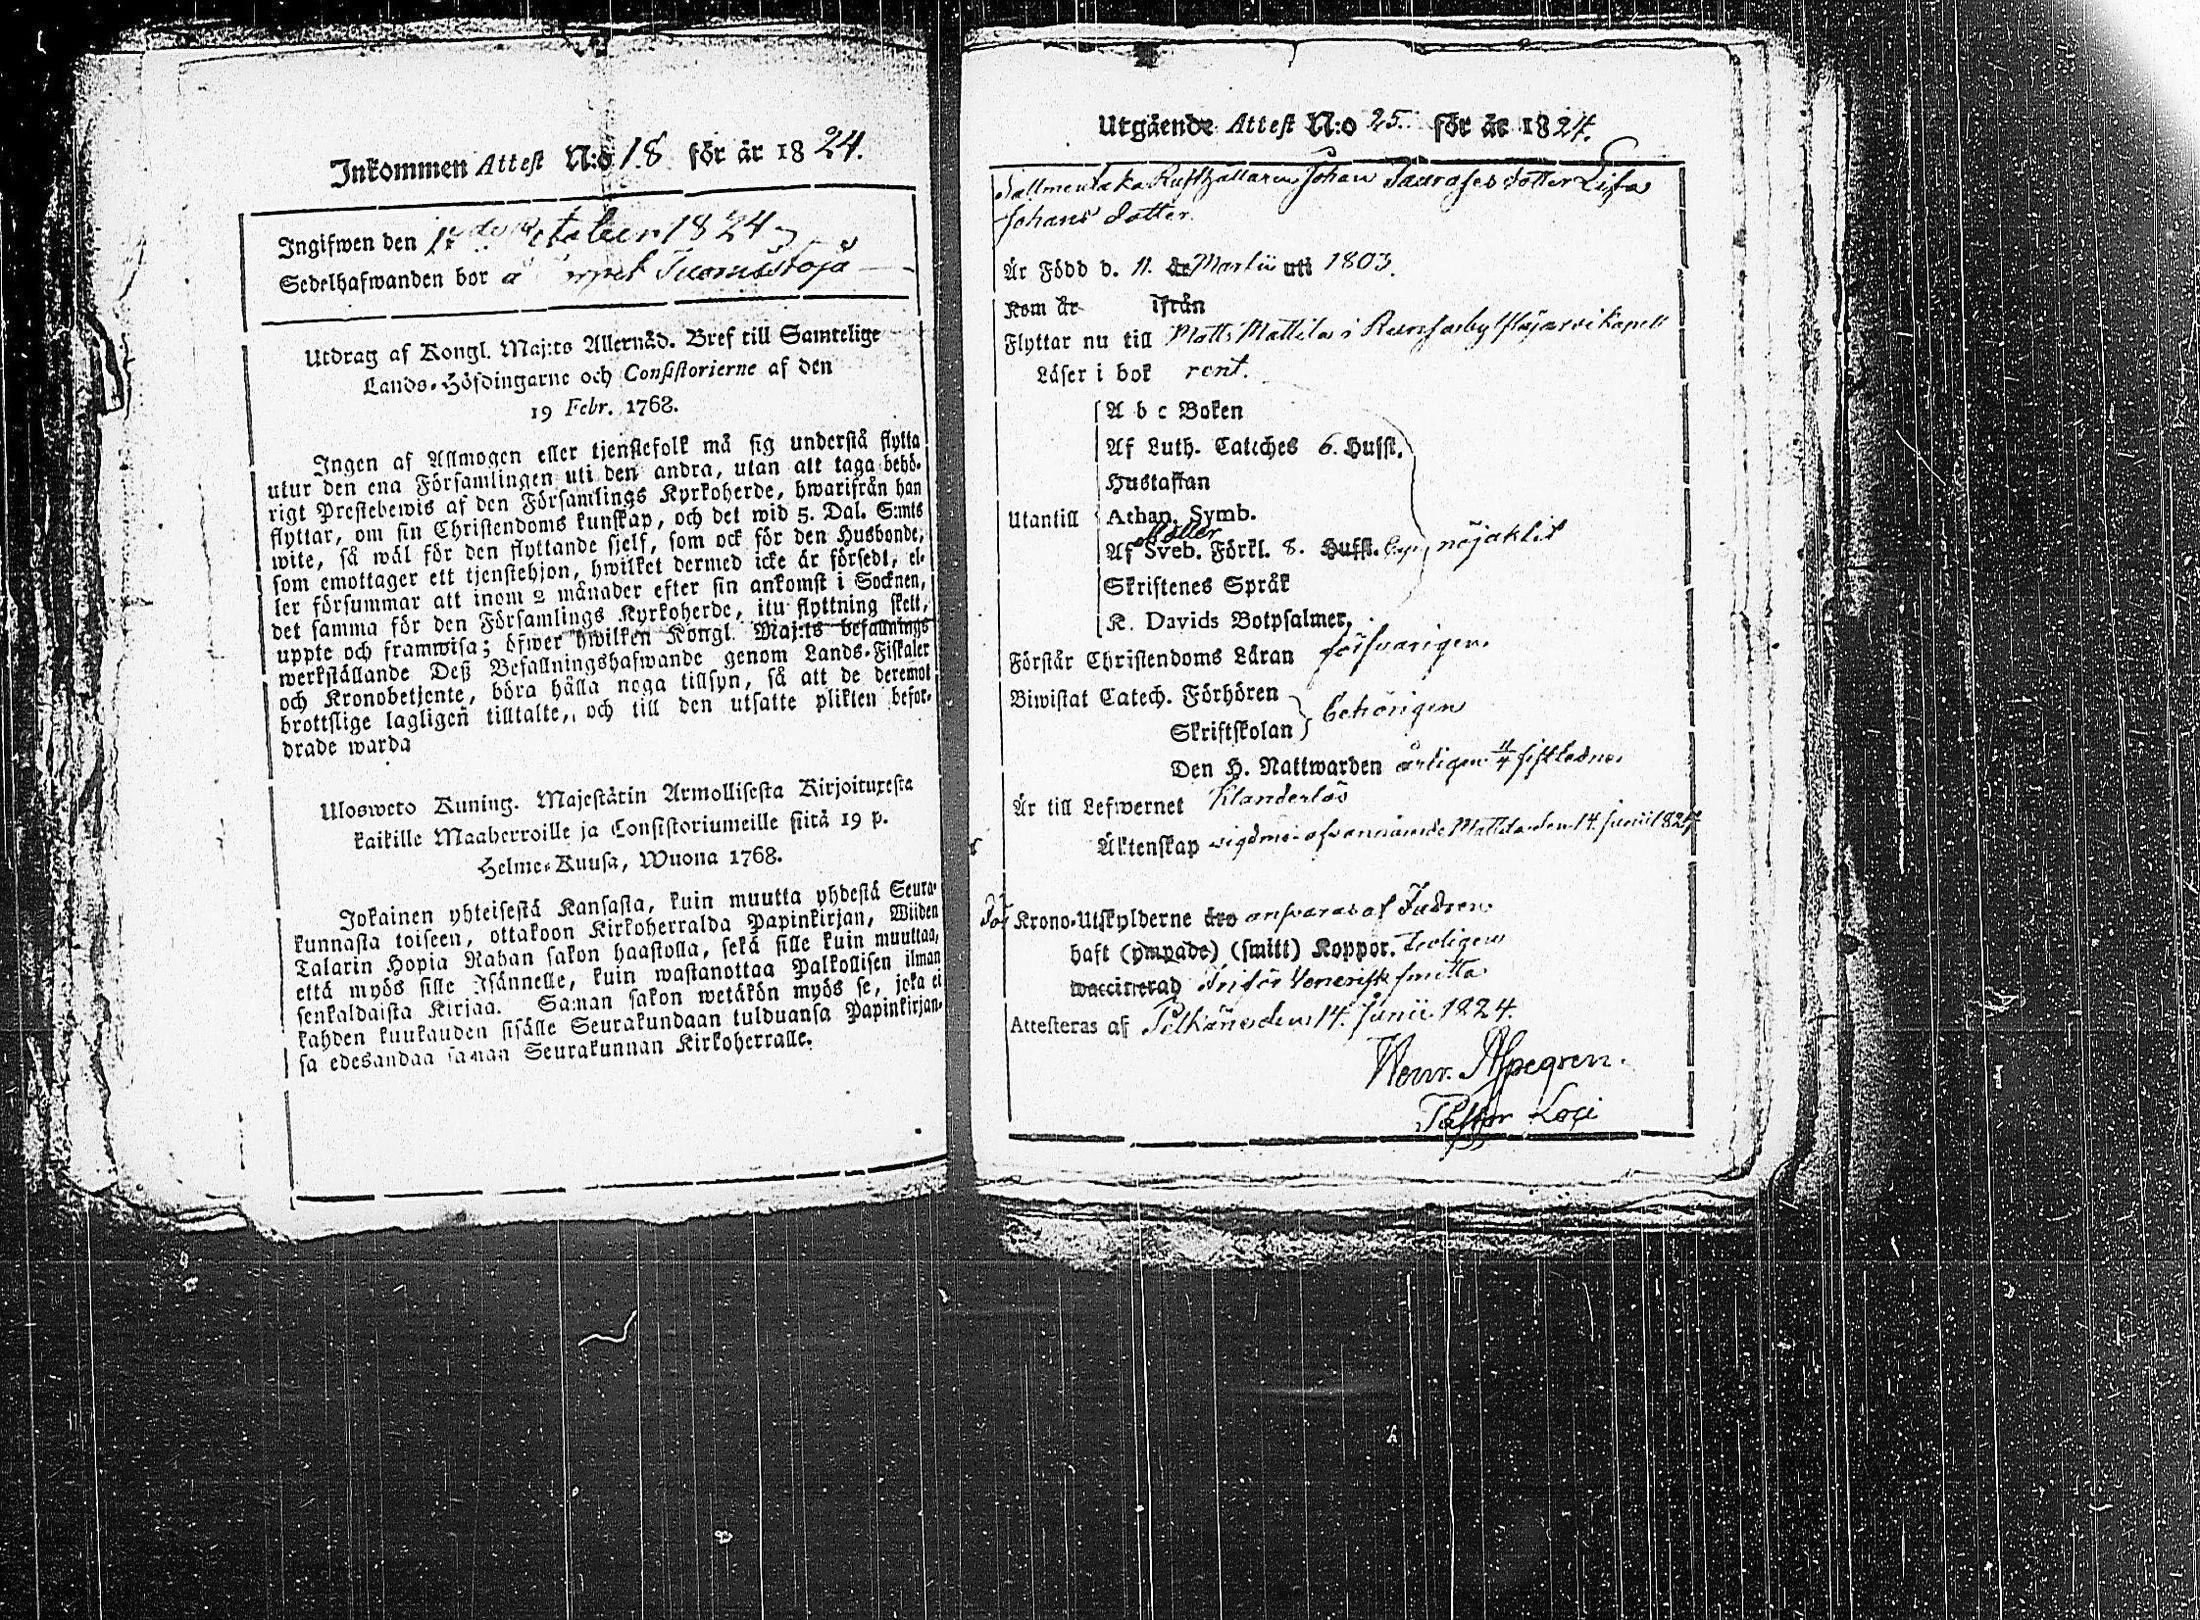 Inkommen Attest N:o 18 för år 1824.
Ingifwen den October 1824
Sedelhafwanden bor å Tuomistoja
Utdrag af Kongl. Maj:ts Allernåd. Bref till Samtelige
Lands-Höfdingarne och Consistorierne af den
19 Febr. 1768.
Ingen af Allmogen eller tjenstefolk må sig understå flytta
utur den ena Församlingen uti den andra, utan att taga behö-
rigt Prestebewis af den Församlings Kyrkoherde, hwarifrån han
flyttar, om sin Christendoms kunskap, och det wid 5. Dal. S:mts
wite, så wäl för den flyttande sjelf, som ock för den Husbonde,
som emottager ett tjenstehjon, hwilket dermed icke är försedt, el-
ler försummar att inom 2 månader efter sin ankomst i Socknen,
det samma för den Församlings Kyrkoherde, itu flyttning skett,
uppte och framwisa; öfwer hwilken Kongl. Maj:ts befallnings
werkställande Deß Befallningshafwande genom Lands-Fiskaler
och Kronobetjente, böra hålla noga tillsyn, så att de deremot
brottslige lagligen tilltalte, och till den utsatte plikten befor-
drade warda
Ulosweto Kuning. Majestätin Armollisesta Kirjoituxesta
kaikille Maaherroille ja Consistoriumeille siitä 19 p.
Helme-Kuusa, Wuona 1768.
Jokainen yhteisestä Kansasta, kuin muutta yhdestä Seura-
kunnasta toiseen, ottakoon Kirkoherralda Papinkirjan, Wiiden
Talarin Hopia Rahan sakon haastolla, sekä sille kuin muuttaa,
että myös sille Isännelle, kuin wastanottaa Palkollisen ilman
senkaldaista Kirjaa. Saman sakon wetäkön myös se, joka ei
kahden kuukauden sisälle Seurakundaan tulduansa Papinkirjan-
sa edesandaa saman Seurakunnan Kirkoherralle.
Utgående Attest N:o 25. för år 1824.
Rusthållaren Johan dotter Lisa
Johans dotter.
Är Född d. 11. år Martii uti 1803.
Kom år ifrån
Flyttar nu till Matts Mattila i
Läser i bok rent.
A b c Boken
Af Luth. Catiches 6. Hufst.
Hustaflan
Utantill Athan. Symb.
Möller
Af Sveb. Förkl. 8. Hufst. nöjaktit
Skriftenes Språk
K. Davids Botpsalmer.
Förstår Christendoms Läran försvarigen.
Biwistat Catech. Förhören
Skriftskolan behörigen
Den H. Nattwarden årligen sistledne
Är till Lefwernet Klanderlös
Äktenskap Mattila den 14. Junii 1824
Krono-Utskylderne äro ansvaras af Fadren
haft (ympade) (smitt) Koppor.
waccinerad Fri för Venerisk smitta
Attesteras af Pelkäne den 14. Junii 1824.
Henr. Alpegren.
Pastor Loci